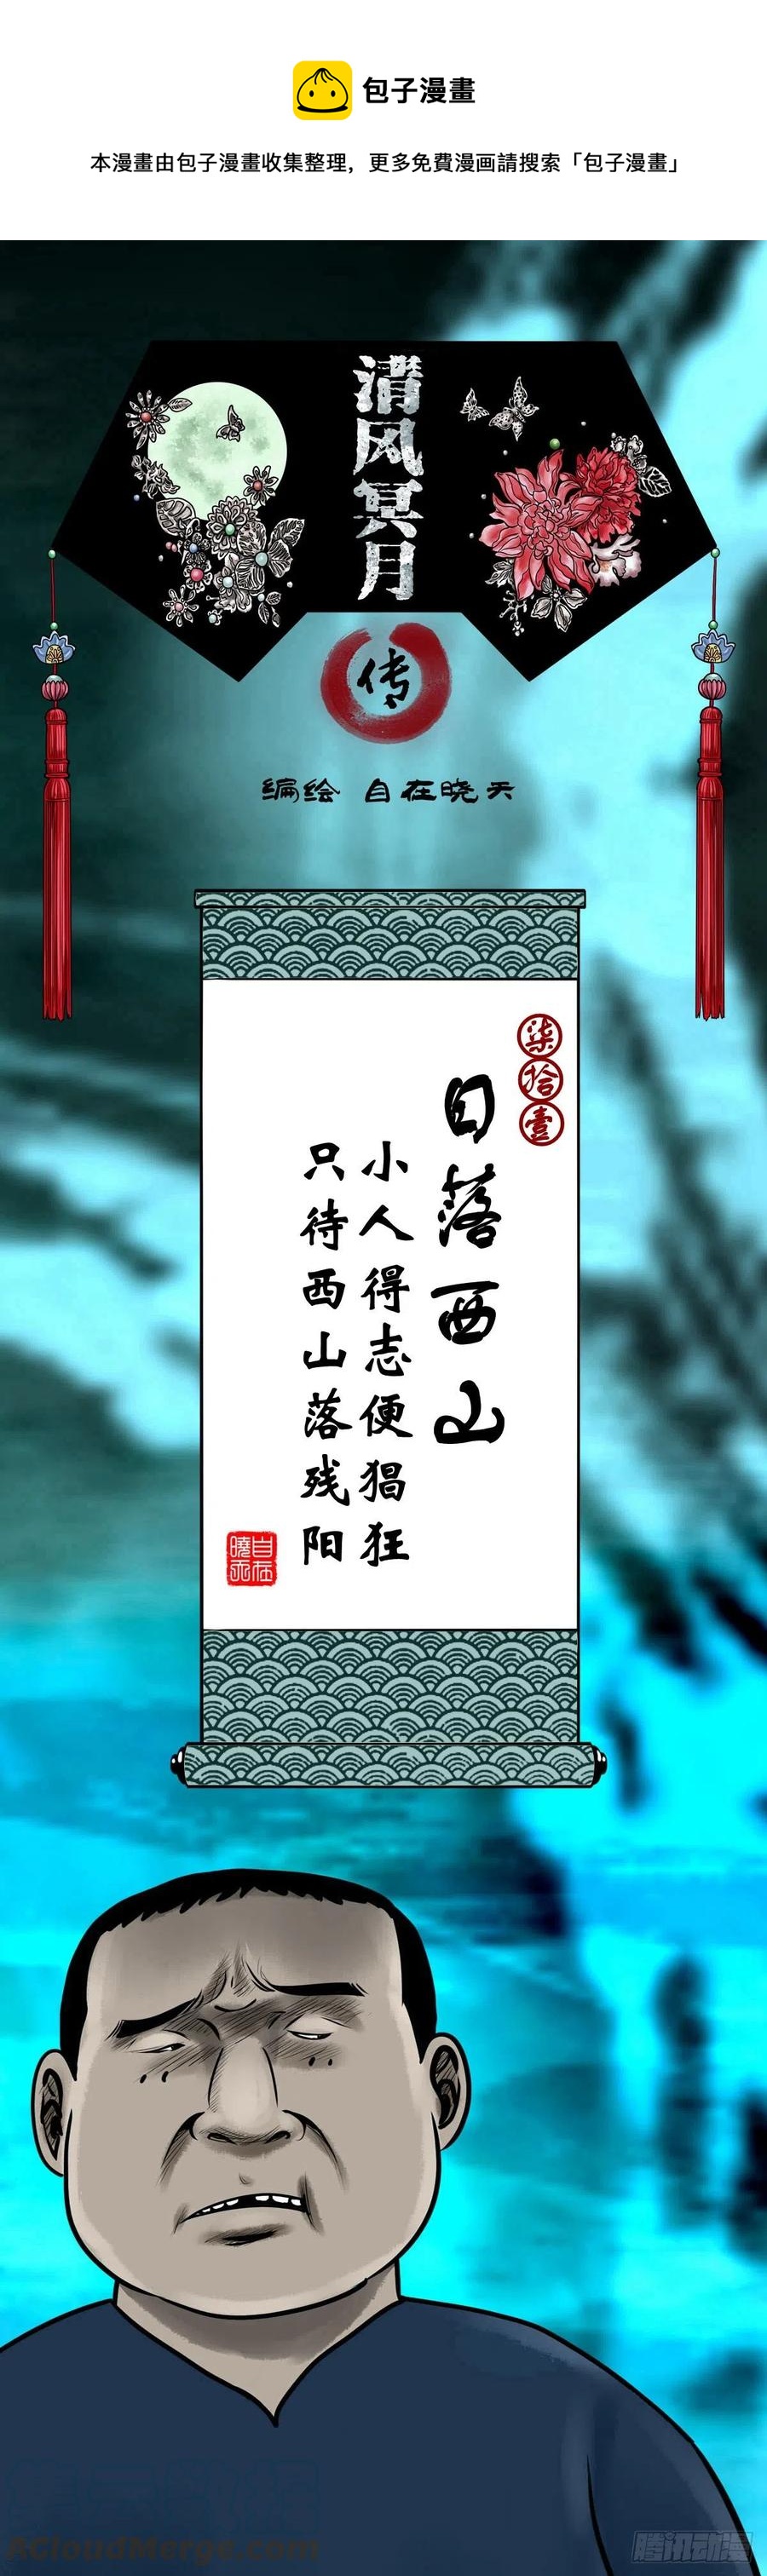 包子漫畫
本漫畫由包子漫畫收集整理，更多免費漫画請搜索「包子漫畫」
清风冥月
传
编绘 自在晓天
柒拾壹
日落西山
小人得志便猖狂
只待西山落残阳
自在曉天
ACloudMerge.com
腾讯动漫